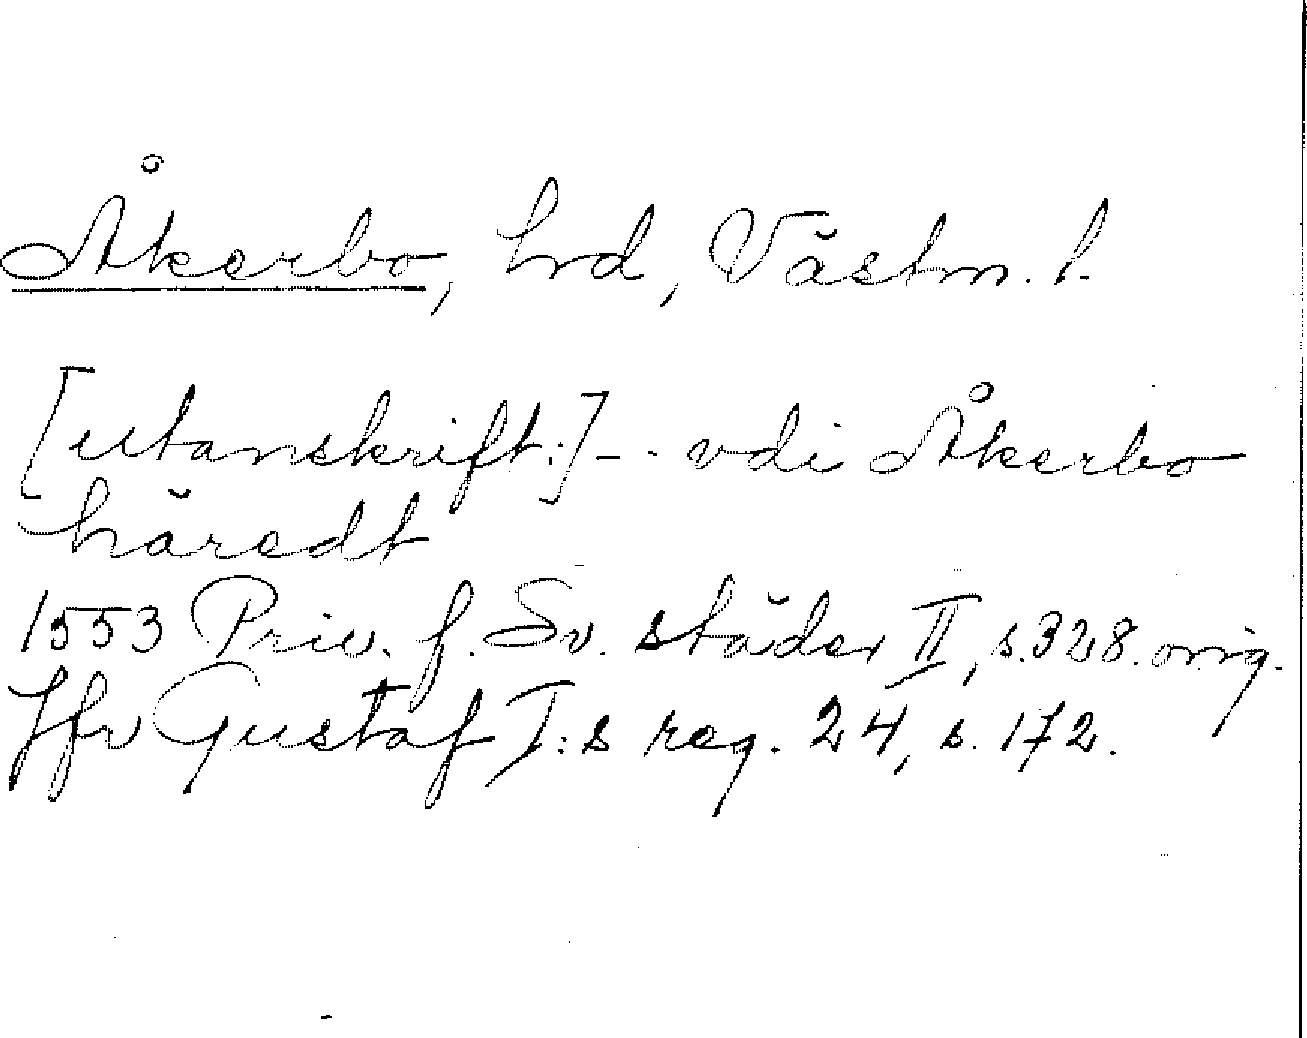 Åkerbo, hrd, Västm. l.
[utanskrift:] - - vdi Åkerbo
häredt
1553 Priv. f. Sv. städer II, s. 328. orig.
Jfr Gustaf I:s reg. 24, s. 172.